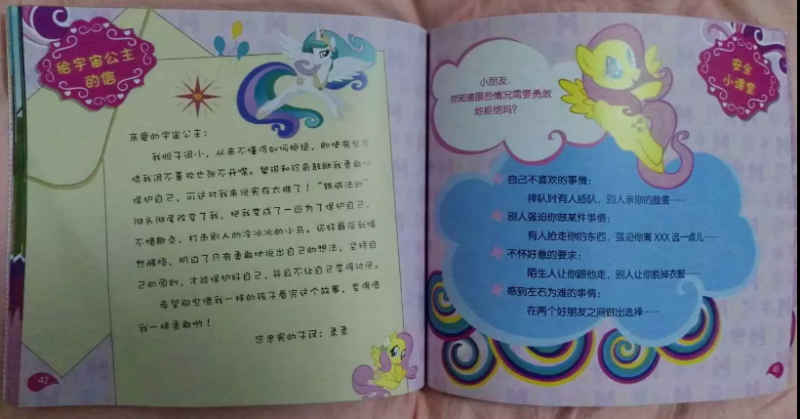 给宇宙公主
的信
亲爱的宇宙公主：
我胆子很小，从来不懂得如何拒绝，即使有些事
情我很不喜欢也张不开嘴。碧琪和珍奇鼓励我勇敢地
保护自己，可这对我来说实在太难了！“铁腕法则”
彻头彻尾改变了我，把我变成了一匹为了保护自己、
不惜欺负、打击别人的冷冰冰的小马。还好最后我幡
然醒悟，明白了只有勇敢地说出自己的想法，坚持自
己的原则，才能保护好自己，并且不让自己变得讨厌。
希望那些像我一样的孩子看完这个故事，变得像
我一样勇敢哟！
您忠实的子民：柔柔
42
安全
小课堂
小朋友，
你知道哪些情况需要勇敢
地拒绝吗？
自己不喜欢的事情：
排队时有人插队，别人亲你的脸蛋……
别人强迫你做某件事情：
有人抢走你的东西，强迫你离 XXX 远一点儿……
不怀好意的要求：
陌生人让你跟他走，别人让你脱掉衣服……
感到左右为难的事情：
在两个好朋友之间做出选择……